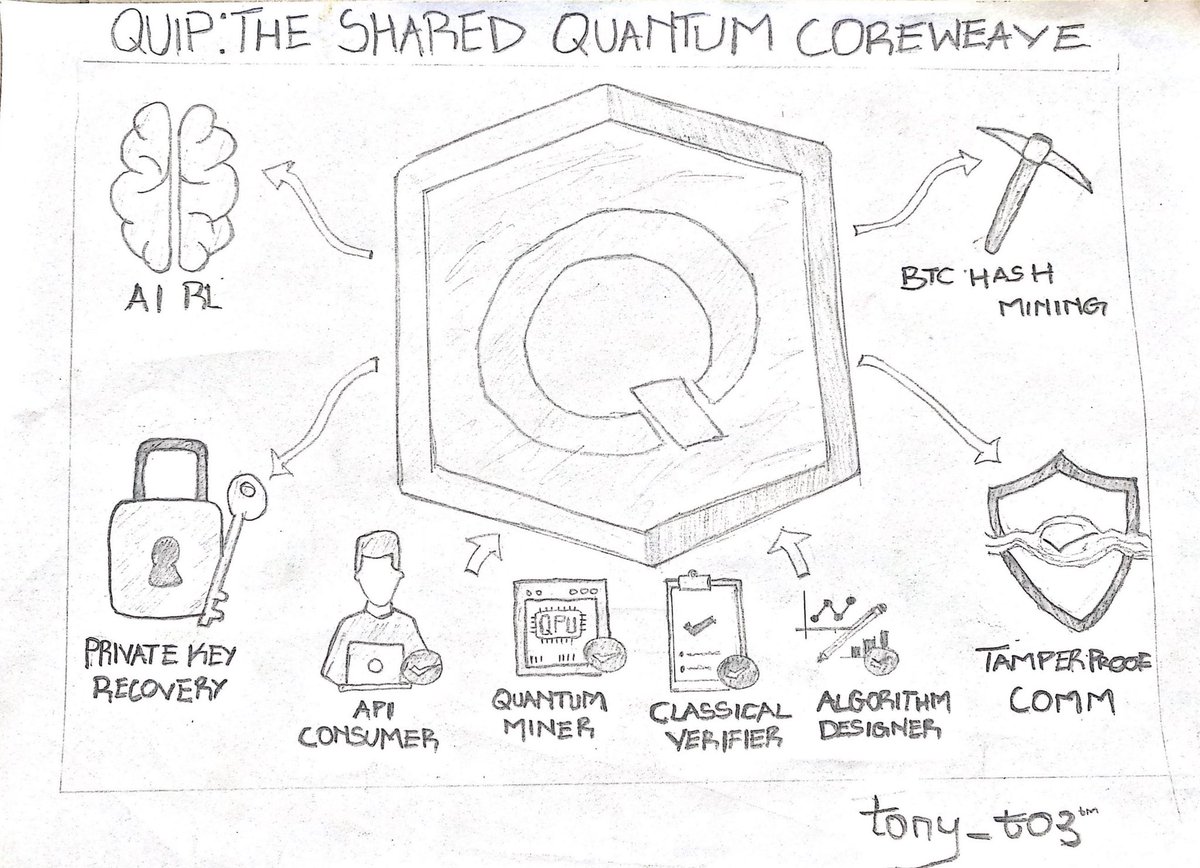 QUIP: THE SHARED QUANTUM COREWEAVE
AI RL
BTC HASH
MINING
PRIVATE KEY
RECOVERY
API
CONSUMER
QPU
QUANTUM
MINER
CLASSICAL
VERIFIER
ALGORITHM
DESIGNER
TAMPERPROOF
COMM
tony_t03™